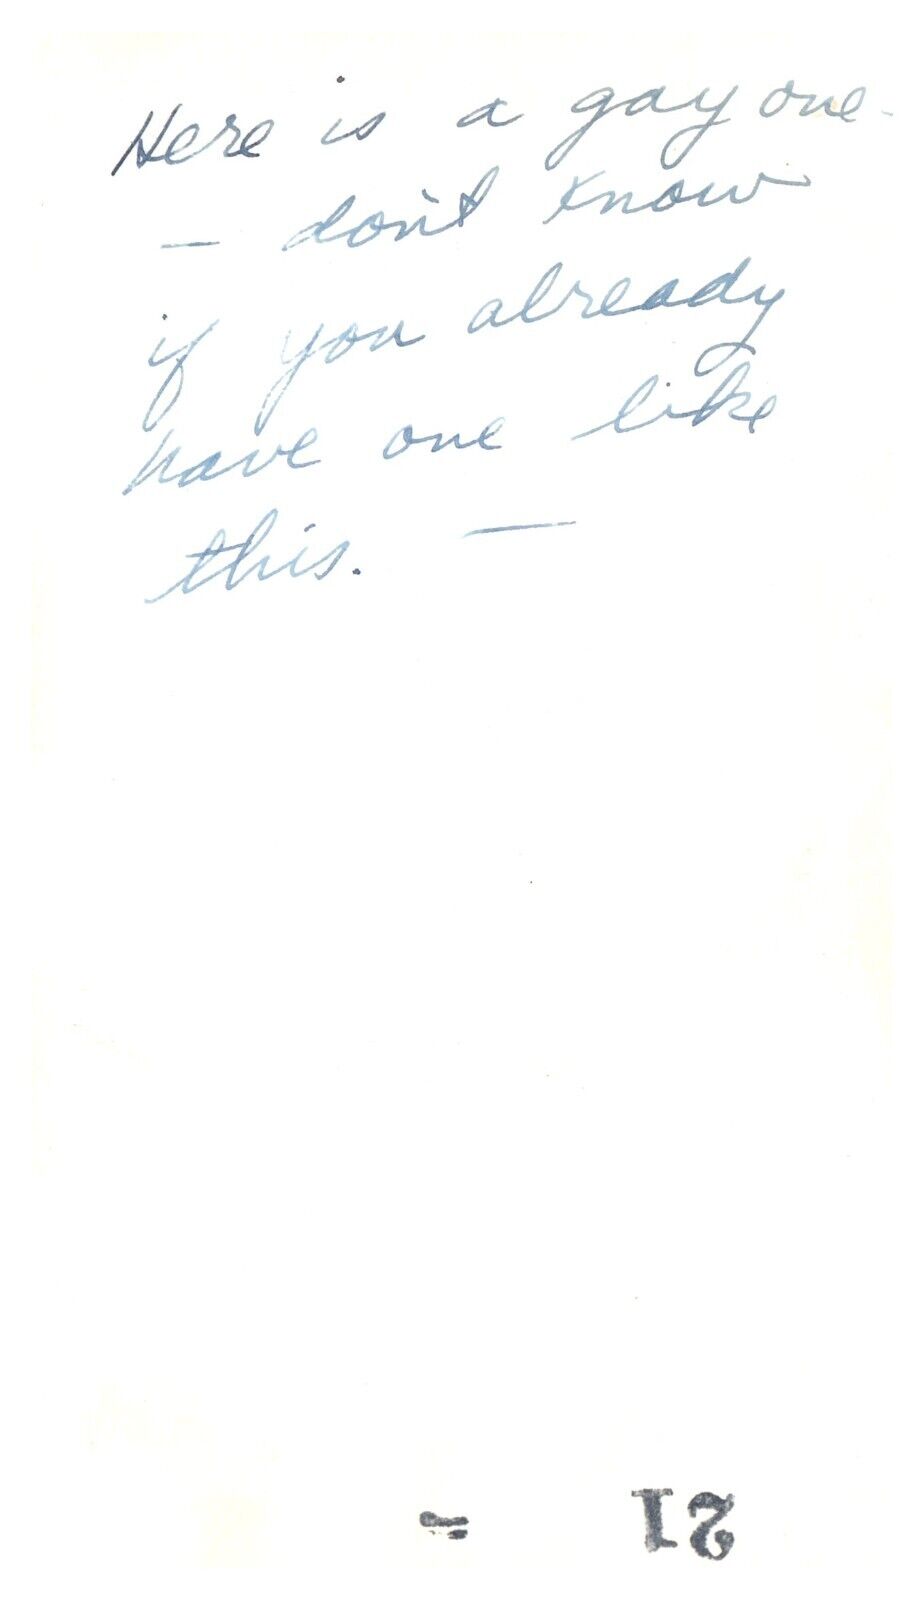 Here is a gay one -
— don't know
if you already
have one like
this. —
21